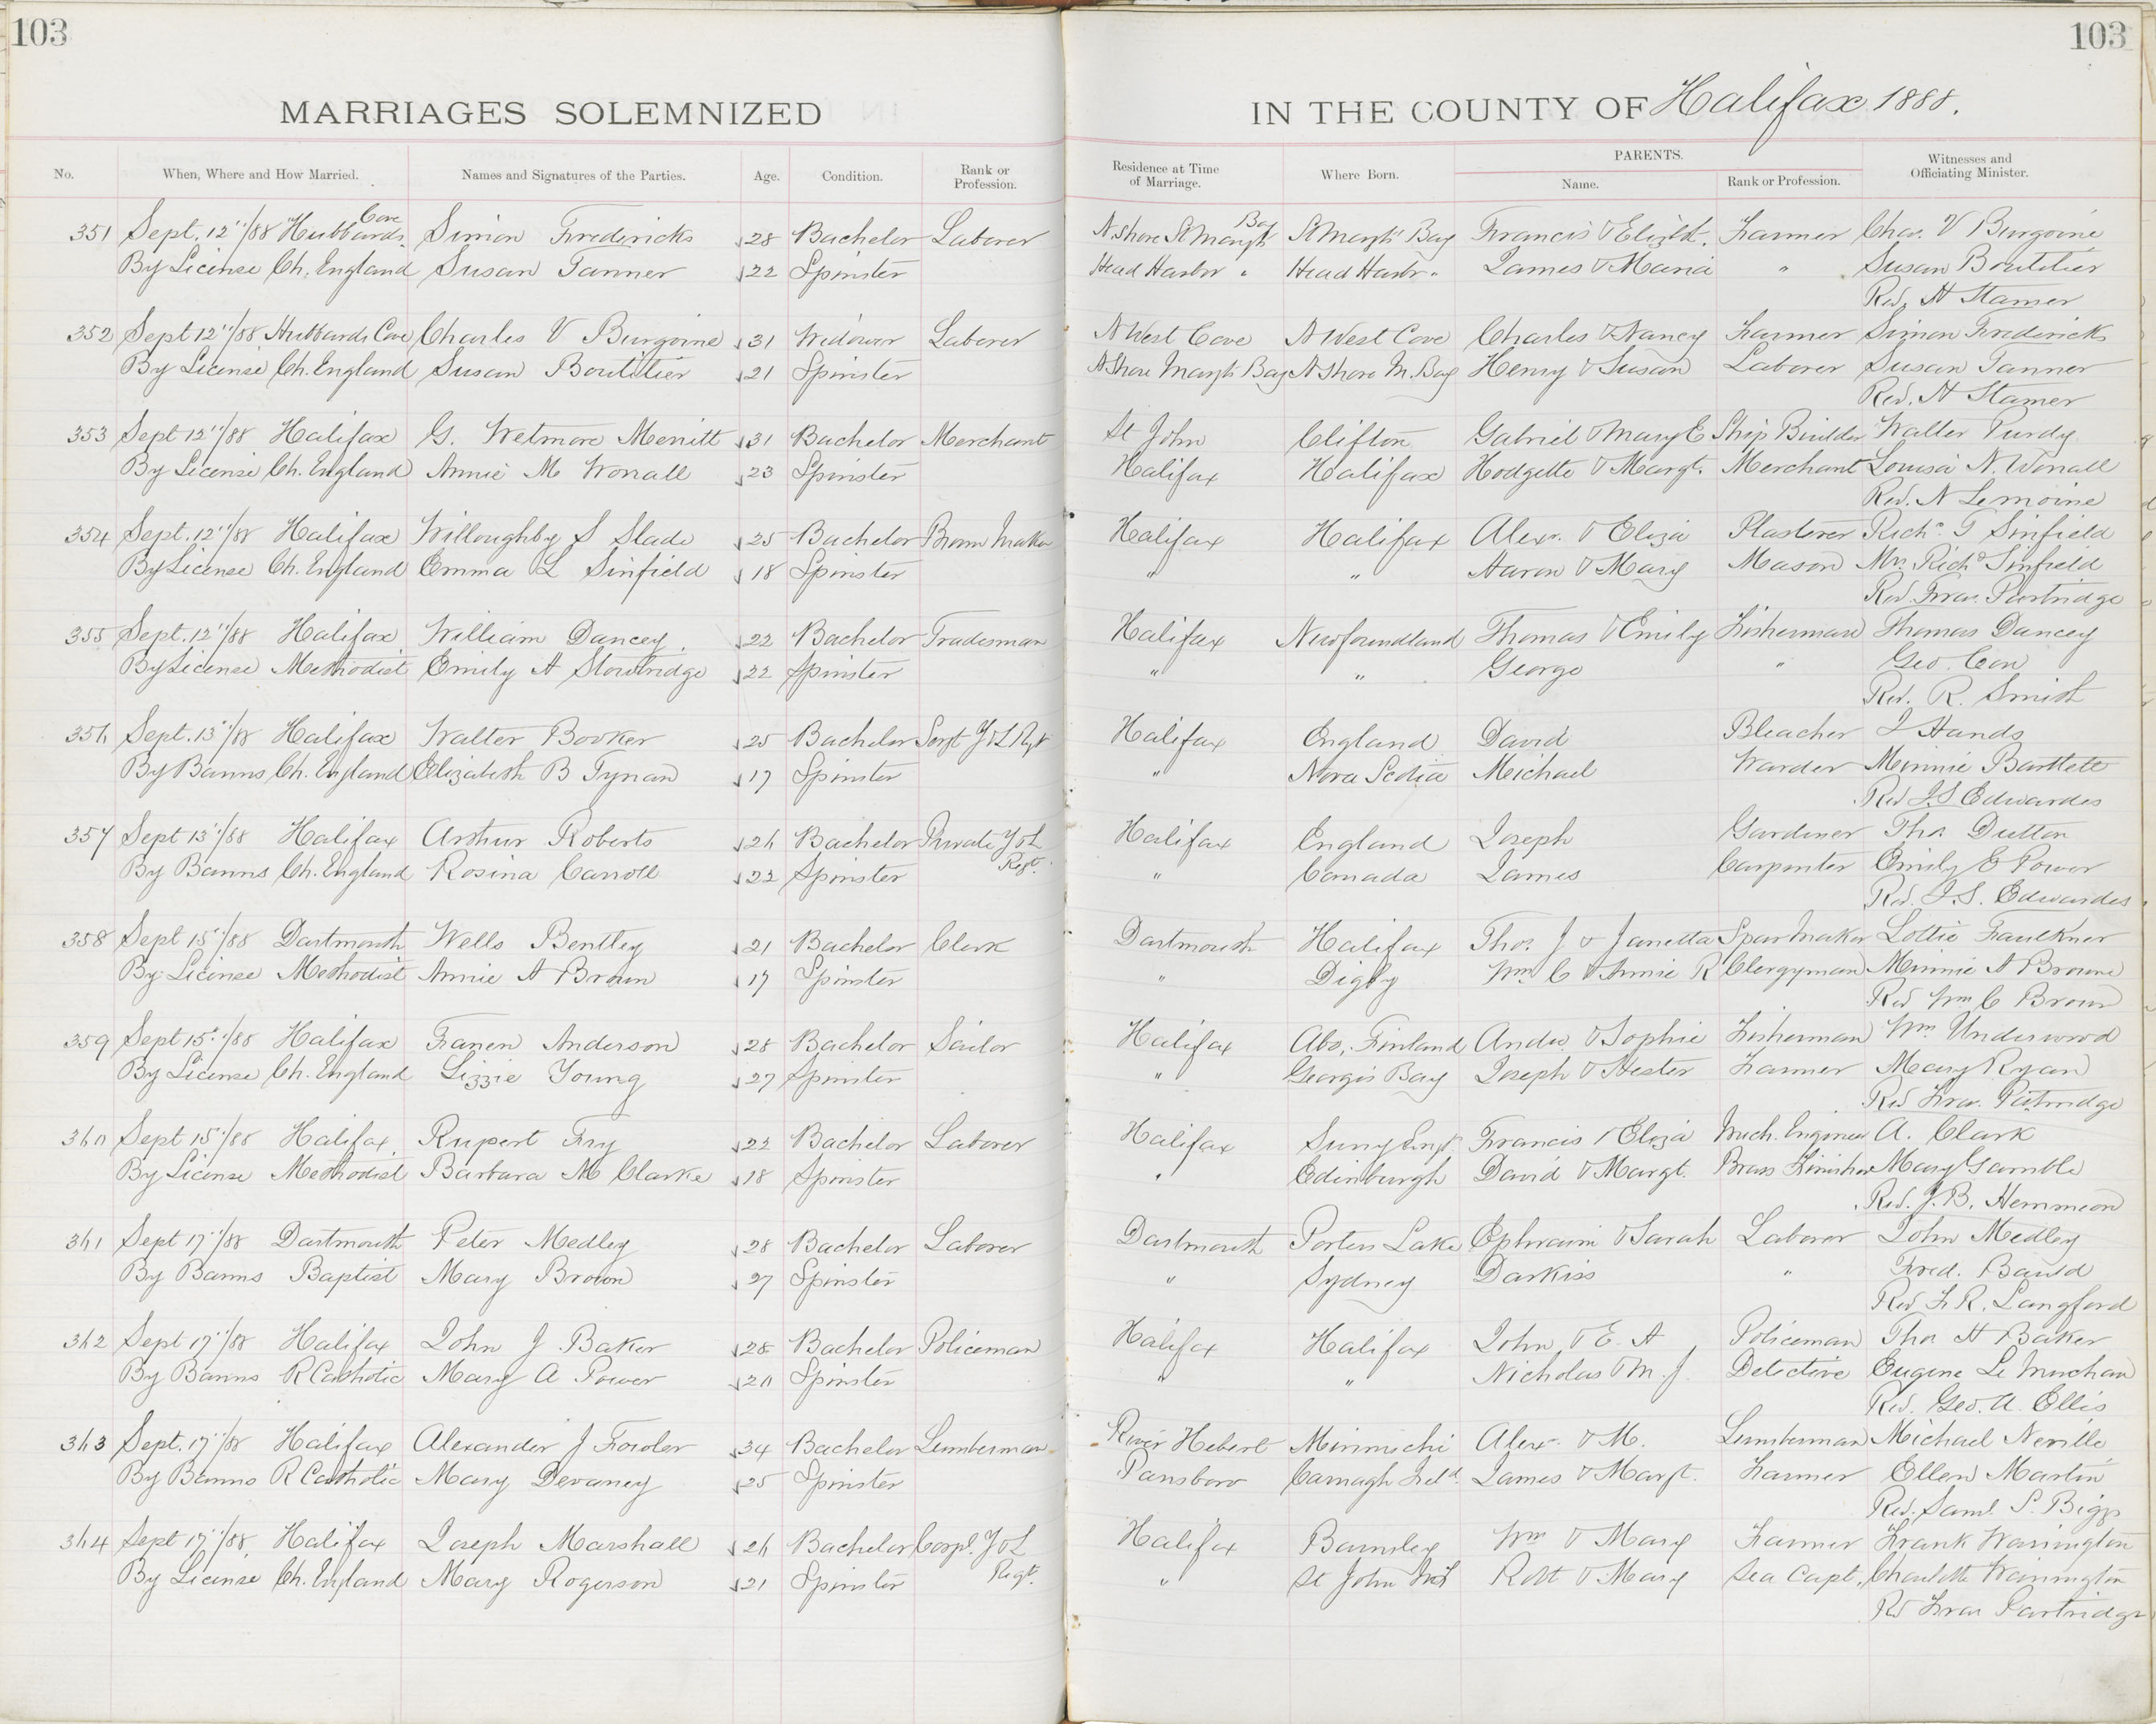 103
103
MARRIAGES SOLEMNIZED
IN THE COUNTY OF Halifax 1888.
No. When, Where and How Married. Names and Signatures of the Parties. Age. Condition. Rank or Profession. Residence at Time of Marriage. Where Born. PARENTS. Name. Rank or Profession. Witnesses and Officiating Minister.
351 Sept. 12"/88 Hubbards Cove Simon Fredericks 28 Bachelor Laborer N Shore St Margts Bay St Margts Bay Francis & Elizbt. Farmer Chas. V Burgoine
By License Ch. England Susan Tanner 22 Spinster Head Harbr " Head Harbr " James & Maria " Susan Boutilier
Rev. H Stamer
352 Sept 12"/88 Hubbards Cove Charles V Burgoine 31 Widower Laborer N West Cove N West Cove Charles & Nancy Farmer Simon Fredericks
By License Ch. England Susan Boutilier 21 Spinster N Shore Margts Bay N Shore M. Bay Henry & Susan Laborer Susan Tanner
Rev. H Stamer
353 Sept 12"/88 Halifax G. Wetmore Merritt 31 Bachelor Merchant St John Clifton Gabriel & Mary E Ship Builder Walter Purdy
By License Ch. England Annie M Worrall 23 Spinster Halifax Halifax Hodgette & Margt. Merchant Louisa N. Worrall
Rev. N Lemoine
354 Sept. 12"/88 Halifax Willoughby S Slade 25 Bachelor Broom Maker Halifax Halifax Alexr. & Eliza Plasterer Richd. G Sinfield
By License Ch. England Emma L Sinfield 18 Spinster " " Aaron & Mary Mason Mrs. Richd Sinfield
Rev. Fras. Partridge
355 Sept. 12"/88 Halifax William Dancey 22 Bachelor Tradesman Halifax Newfoundland Thomas & Emily Fisherman Thomas Dancey
By License Methodist Emily A Slowbridge 22 Spinster " " George " Geo.
Rev. R. Smith
356 Sept. 13"/88 Halifax Walter Booker 25 Bachelor Sergt Y & L Rgt Halifax England David Bleacher J Hands
By Banns Ch. England Elizabeth B Tynan 17 Spinster " Nova Scotia Michael Warder Minnie Bartlett
Rev J. S Edwardes
357 Sept 13"/88 Halifax Arthur Roberts 26 Bachelor Private Y & L Regt. Halifax England Joseph Gardiner Thos Dutton
By Banns Ch. England Rosina Carroll 22 Spinster " Canada James Carpenter Emily E Power
Rev. J. S. Edwardes
358 Sept 15"/88 Dartmouth Wells Bentley 21 Bachelor Clerk Dartmouth Halifax Thos. J & Janetta Spar Maker Lottie Faulkner
By License Methodist Annie A Brown 17 Spinster " Digby Wm. C & Annie R Clergyman Minnie A Browne
Rev Wm C Brown
359 Sept 15"/88 Halifax Anderson 28 Bachelor Sailor Halifax Abo, Finland Andw. & Sophie Fisherman Wm. Underwood
By License Ch. England Lizzie Young 27 Spinster " Georges Bay Joseph & Hester Farmer Mary Ryan
Rev Fras. Partridge
360 Sept 15"/88 Halifax Rupert Fry 22 Bachelor Laborer Halifax Francis & Eliza Mech. Engineer A. Clark
By License Methodist Barbara M Clarke 18 Spinster " Edinburgh David & Margt. Brass Finisher Mary Gamble
Rev. J. B. Hemmeon
361 Sept 17"/88 Dartmouth Peter Medley 28 Bachelor Laborer Dartmouth Porters Lake Ephraim & Sarah Laborer John Medley
By Banns Baptist Mary Brown 27 Spinster " Sydney Darkiss " Fred. Bauld
Rev F. R. Langford
362 Sept 17"/88 Halifax John J Baker 28 Bachelor Policeman Halifax Halifax John & E. A Policeman Thos A Baker
By Banns R Catholic Mary A Power 20 Spinster " " Nicholas & M. J. Detective Eugene Le Merchan
Rev. Geo. A. Ellis
363 Sept. 17"/88 Halifax Alexander J Fowler 34 Bachelor Lumberman River Hebert Mirimichi Alexr. & M. Lumberman Michael Neville
By Banns R Catholic Mary Devaney 25 Spinster Parrsboro Carnagh Ireld. James & Margt. Farmer Ellen Martin
Rev. Saml. P. Biggs
364 Sept 17"/88 Halifax Joseph Marshall 26 Bachelor Corpl. Y & L Regt. Halifax Barnsley Wm & Mary Farmer Frank Warrington
By License Ch. England Mary Rogerson 21 Spinster " St John Nfl Robt & Mary Sea Capt. Charlotte Warrington
Rev Fras Partridge